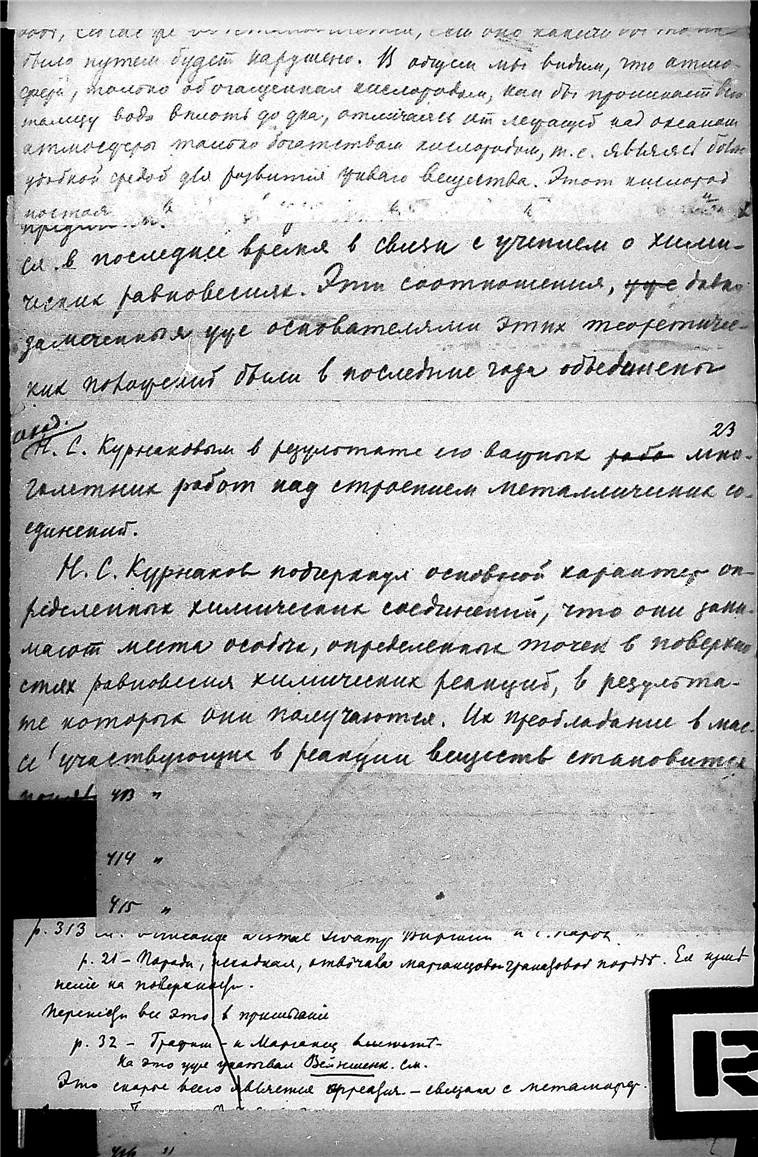 было путем будет нарушено. В общем мы видим, что атмо-
сфера, только обогащенная кислородом, как бы проникает всю
толщу воды вплоть до дна, отличаясь от лежащей над океаном
атмосферы только богатством кислородом, т.е. является более
удобной средой для развития живого вещества. Этот кислород
ся в последнее время в связи с учением о хими-
ческих равновесиях. Эти соотношения, уже давно
замеченныя уже основателями этих теоретичес-
ких положений были в последние года объединены
23
акад.
Н. С. Курнаковым в результате его важных рабо мно-
голетних работ над строением металлических со-
единений.
Н. С. Курнаков подчеркнул основной характер оп-
ределенных химических соединений, что они зани-
мают места особых, определенных точек в поверхно
стях равновесия химических реакций, в результа-
те которых они получаются. Их преобладание в мас-
се участвующих в реакции веществ становится
413 "
414 "
415 "
p. 313
p. 21 – Порода, отвечает марганцово-гранатовой породе. Ея
на поверхности.
Перенести все это в примечания
p. 32 – Графит – и Марганец
На это уже указывал Вейншенк. см.
Это скорее всего является – связана с метаморф.
416 "